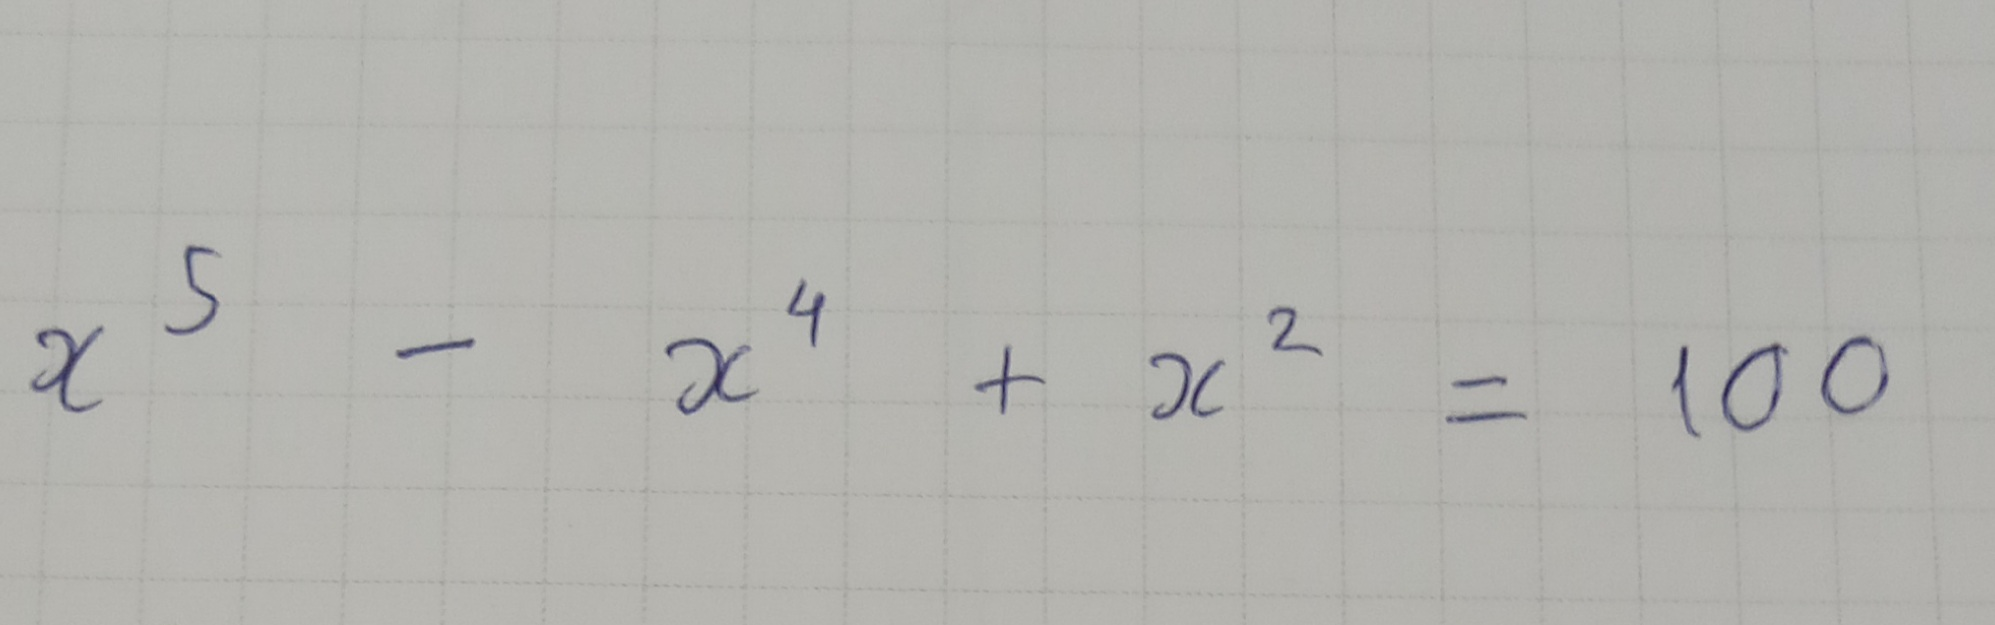 x⁵ - x⁴ + x² = 100